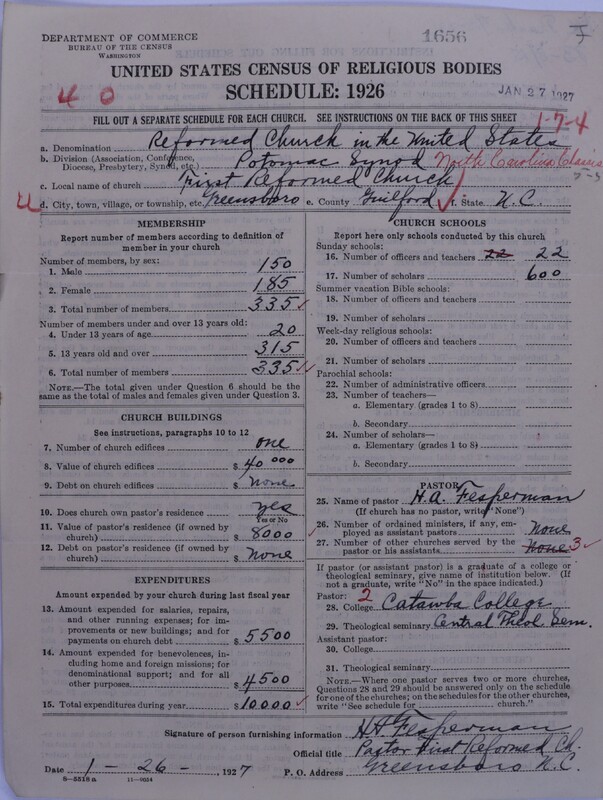 DEPARTMENT OF COMMERCE
BUREAU OF THE CENSUS
WASHINGTON
1656
UNITED STATES CENSUS OF RELIGIOUS BODIES
SCHEDULE: 1926
JAN 27 1927
4 0
FILL OUT A SEPARATE SCHEDULE FOR EACH CHURCH. SEE INSTRUCTIONS ON THE BACK OF THIS SHEET
1-7-4
a. Denomination Reformed Church in the United States
b. Division (Association, Conference, Diocese, Presbytery, Synod, etc.) Potomac Synod North Carolina Classis
c. Local name of church First Reformed Church
d. City, town, village, or township, etc. Greensboro e. County Guilford f. State N.C.
MEMBERSHIP
Report number of members according to definition of member in your church
Number of members, by sex:
1. Male 150
2. Female 185
3. Total number of members 335
Number of members under and over 13 years old:
4. Under 13 years of age 20
5. 13 years old and over 315
6. Total number of members 335
NOTE.—The total given under Question 6 should be the same as the total of males and females given under Question 3.
CHURCH BUILDINGS
See instructions, paragraphs 10 to 12
7. Number of church edifices one
8. Value of church edifices $ 40 000
9. Debt on church edifices $ None
10. Does church own pastor's residence? yes
Yes or No
11. Value of pastor's residence (if owned by church) $ 8000
12. Debt on pastor's residence (if owned by church) $ None
EXPENDITURES
Amount expended by your church during last fiscal year
13. Amount expended for salaries, repairs, and other running expenses; for improvements or new buildings; and for payments on church debt $ 5500
14. Amount expended for benevolences, including home and foreign missions; for denominational support; and for all other purposes $ 4500
15. Total expenditures during year $ 10000
CHURCH SCHOOLS
Report here only schools conducted by this church
Sunday schools:
16. Number of officers and teachers 22 22
17. Number of scholars 600
Summer vacation Bible schools:
18. Number of officers and teachers
19. Number of scholars
Week-day religious schools:
20. Number of officers and teachers
21. Number of scholars
Parochial schools:
22. Number of administrative officers
23. Number of teachers—
a. Elementary (grades 1 to 8)
b. Secondary
24. Number of scholars—
a. Elementary (grades 1 to 8)
b. Secondary
PASTOR
25. Name of pastor H.A. Fesperman
(If church has no pastor, write "None")
26. Number of ordained ministers, if any, employed as assistant pastors None
27. Number of other churches served by the pastor or his assistants None 3
If pastor (or assistant pastor) is a graduate of a college or theological seminary, give name of institution below. (If not a graduate, write "No" in the space indicated.)
Pastor: 2
28. College Catawba College
29. Theological seminary Central Theol. Sem.
Assistant pastor:
30. College
31. Theological seminary
NOTE.—Where one pastor serves two or more churches, Questions 28 and 29 should be answered only on the schedule for one of the churches; on the schedules for the other churches, write "See schedule for church."
Signature of person furnishing information H A Fesperman
Official title Pastor First Reformed Ch.
Date 1 - 26 -, 1927 P. O. Address Greensboro N.C.
8-5518a 11-9034